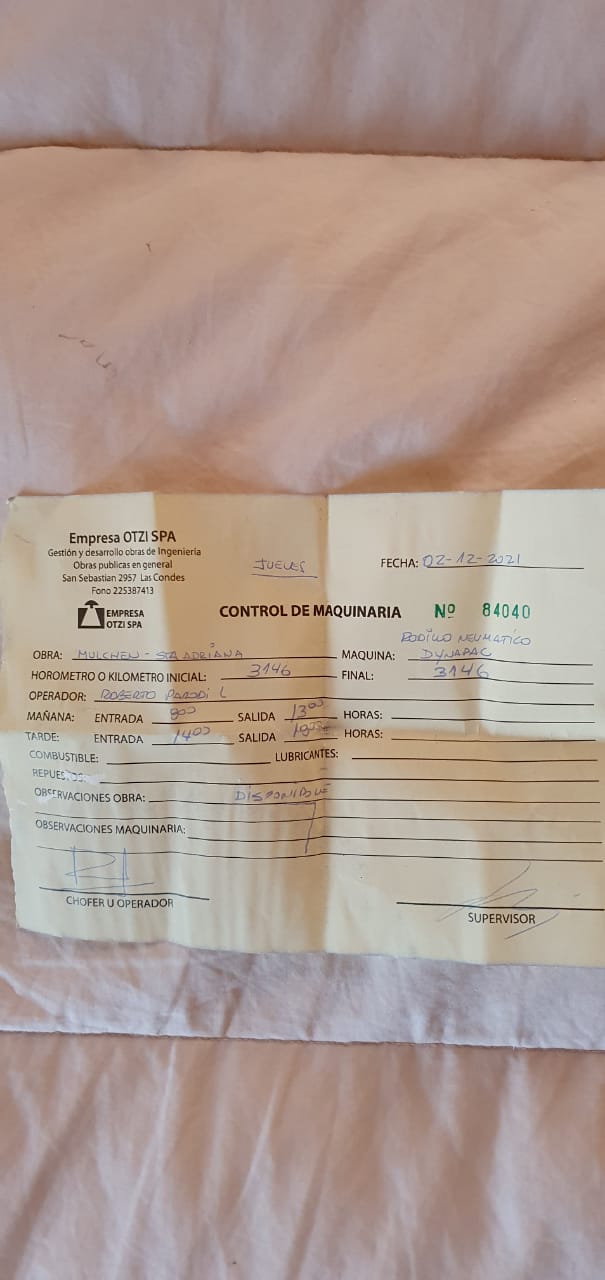 Empresa OTZI SPA
Gestión y desarrollo obras de Ingeniería
Obras publicas en general
San Sebastian 2957 Las Condes
Fono 225387413
EMPRESA
OTZI SPA
JUEVES
FECHA: 02-12-2021
CONTROL DE MAQUINARIA Nº 84040
RODILLO NEUMATICO
OBRA: MULCHEN - STA ADRIANA MAQUINA: DYNAPAC
HOROMETRO O KILOMETRO INICIAL: 3146 FINAL: 3146
OPERADOR: ROBERTO PARODI L
MAÑANA: ENTRADA 800 SALIDA 1300 HORAS:
TARDE: ENTRADA 1400 SALIDA HORAS:
COMBUSTIBLE: LUBRICANTES:
REPUESTOS:
OBSERVACIONES OBRA: DISPONIBLE
OBSERVACIONES MAQUINARIA:
CHOFER U OPERADOR
SUPERVISOR